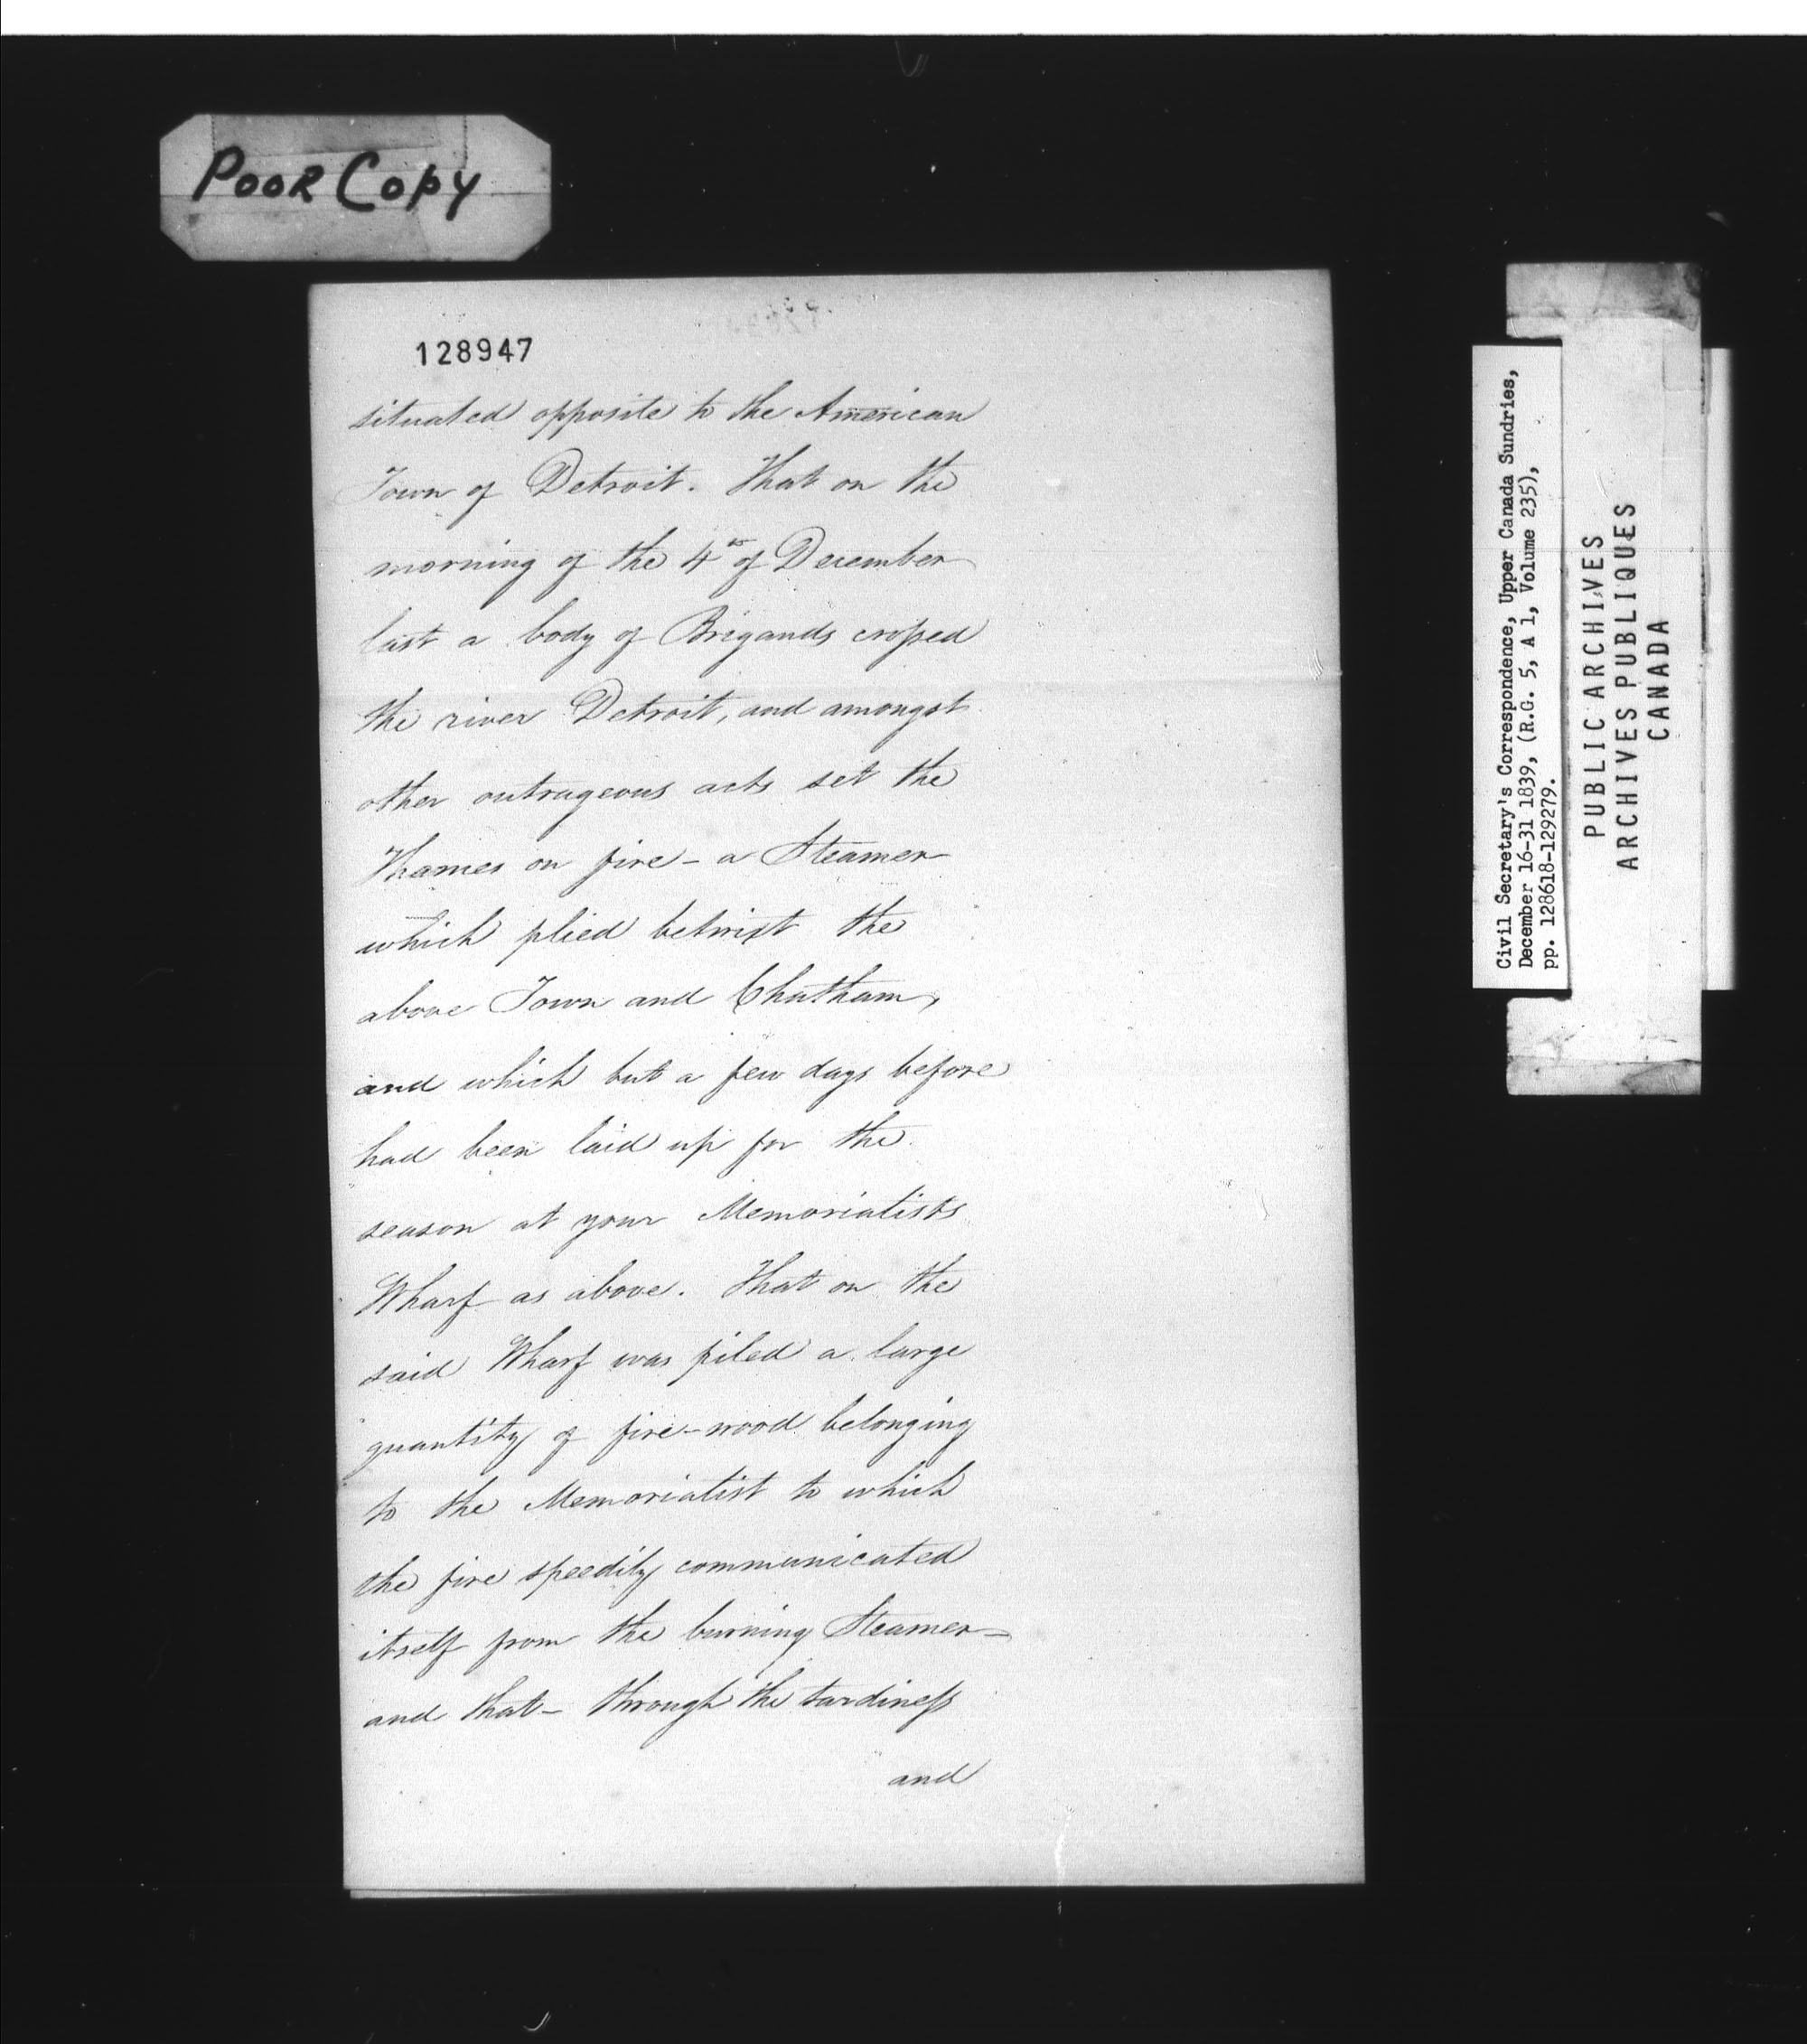 Poor Copy
128947
situated opposite to the American
Town of Detroit. That on the
morning of the 4th of December
last a body of Brigands crossed
the river Detroit, and amongst
other outrageous acts set the
Thames on fire - a Steamer
which plied betwixt the
above Town and Chatham,
and which but a few days before
had been laid up for the
season at your Memorialists
Wharf as above. That on the
said Wharf was piled a large
quantity of fire-wood belonging
to the Memorialist to which
the fire speedily communicated
itself from the burning Steamer -
and that - through the tardiness
and
Civil Secretary's Correspondence, Upper Canada Sundries,
December 16-31 1839, (R.G. 5, A 1, Volume 235),
pp. 128618-129279.
PUBLIC ARCHIVES
ARCHIVES PUBLIQUES
CANADA